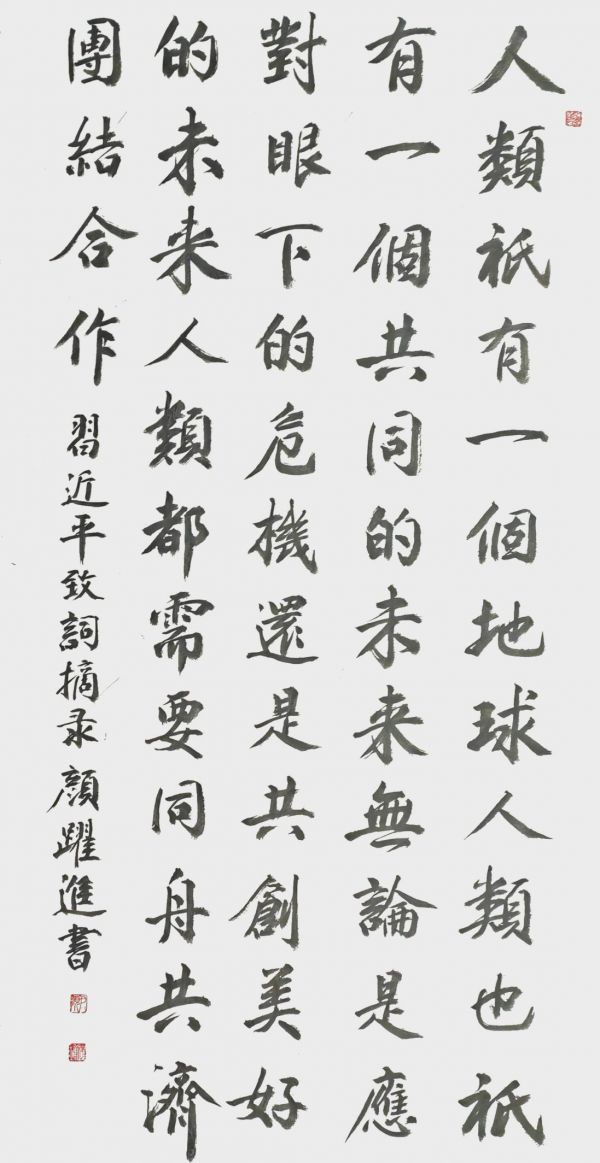 人類衹有一個地球人類也衹
有一個共同的未来無論是應
對眼下的危機還是共創美好
的未来人類都需要同舟共濟
團結合作
習近平致詞摘录 顏躍進書